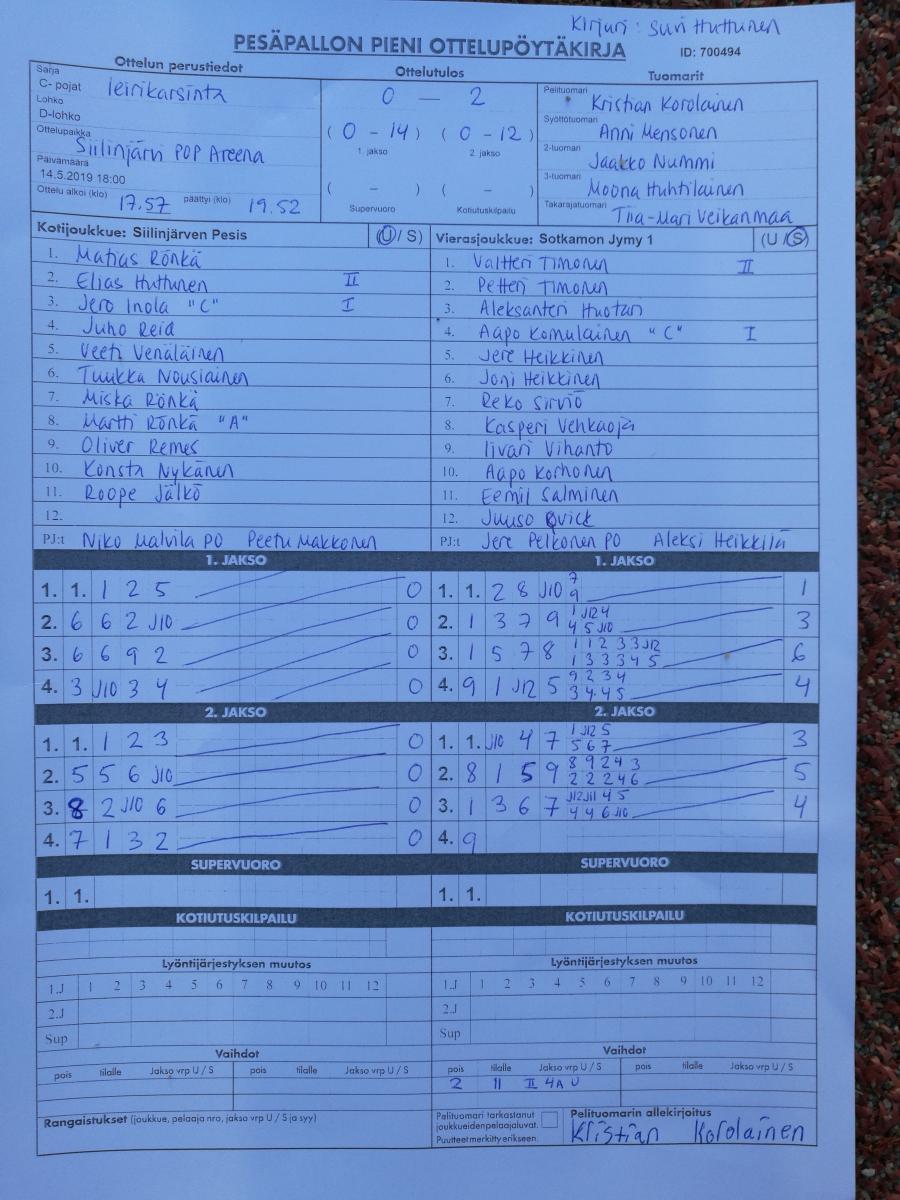 Kirjuri: Suvi Huttunen
PESÄPALLON PIENI OTTELUPÖYTÄKIRJA ID: 700494
Ottelun perustiedot
Sarja
C- pojat leirikarsinta
Lohko
D-lohko
Ottelupaikka
Siilinjärvi POP Areena
Päivämäärä
14.5.2019 18:00
Ottelu alkoi (klo) 17.57 päättyi (klo) 19.52
Ottelutulos
0 — 2
(0 - 14) (0 - 12)
1. jakso 2. jakso
( - ) ( - )
Supervuoro Kotiutuskilpailu
Tuomarit
Pelituomari
Kristian Korolainen
Syöttötuomari
Anni Mensonen
2-tuomari
Jaakko Nummi
3-tuomari
Moona Huhtilainen
Takarajatuomari
Tiia-Mari Veikanmaa
Kotijoukkue: Siilinjärven Pesis (U / S)
1. Matias Rönkä
2. Elias Huttunen II
3. Jero Inola "C" I
4. Juho Reid
5. Veeti Venäläinen
6. Tuukka Nousiainen
7. Miska Rönkä
8. Martti Rönkä "A"
9. Oliver Remes
10. Konsta Nykänen
11. Roope Jälkö
12.
PJ:t Niko Malvila PO Peetu Makkonen
Vierasjoukkue: Sotkamon Jymy 1 (U / S)
1. Valtteri Timonen II
2. Petteri Timonen
3. Aleksanteri Huotari
4. Aapo Komulainen "C" I
5. Jere Heikkinen
6. Joni Heikkinen
7. Reko Sirviö
8. Kasperi Vehkaoja
9. Iivari Vihanto
10. Aapo Korhonen
11. Eemil Salminen
12. Juuso Qvick
PJ:t Jere Pelkonen PO Aleksi Heikkilä
1. JAKSO
1. 1. 1 2 5 0
2. 6 6 2 J10 0
3. 6 6 9 2 0
4. 3 J10 3 4 0
2. JAKSO
1. 1. 1 2 3 0
2. 5 5 6 J10 0
3. 8 2 J10 6 0
4. 7 1 3 2 0
SUPERVUORO
1. 1.
KOTIUTUSKILPAILU
Lyöntijärjestyksen muutos
1.J 1 2 3 4 5 6 7 8 9 10 11 12
2.J
Sup
Vaihdot
pois tilalle Jakso vrp U / S pois tilalle Jakso vrp U / S
Rangaistukset (joukkue, pelaaja nro, jakso vrp U / S ja syy)
1. JAKSO
1. 1. 2 8 J10 7 1
9
2. 1 3 7 9 1 J12 4 3
4 5 J10
3. 1 5 7 8 1 1 2 3 3 J12 6
1 3 3 3 4 5
4. 9 1 J12 5 9 2 3 4 4
3 4 4 5
2. JAKSO
1. 1. J10 4 7 1 J12 5 3
5 6 7
2. 8 1 5 9 8 9 2 4 3 5
2 2 2 4 6
3. 1 3 6 7 J12 J11 4 5 4
4 4 6 J10
4. 9
SUPERVUORO
1. 1.
KOTIUTUSKILPAILU
Lyöntijärjestyksen muutos
1.J 1 2 3 4 5 6 7 8 9 10 11 12
2.J
Sup
Vaihdot
pois tilalle Jakso vrp U / S pois tilalle Jakso vrp U / S
2 11 II 4A U
Pelituomari tarkastanut
joukkueidenpelaajaluvat.
Puutteet merkitty erikseen.
Pelituomarin allekirjoitus
Kristian Korolainen